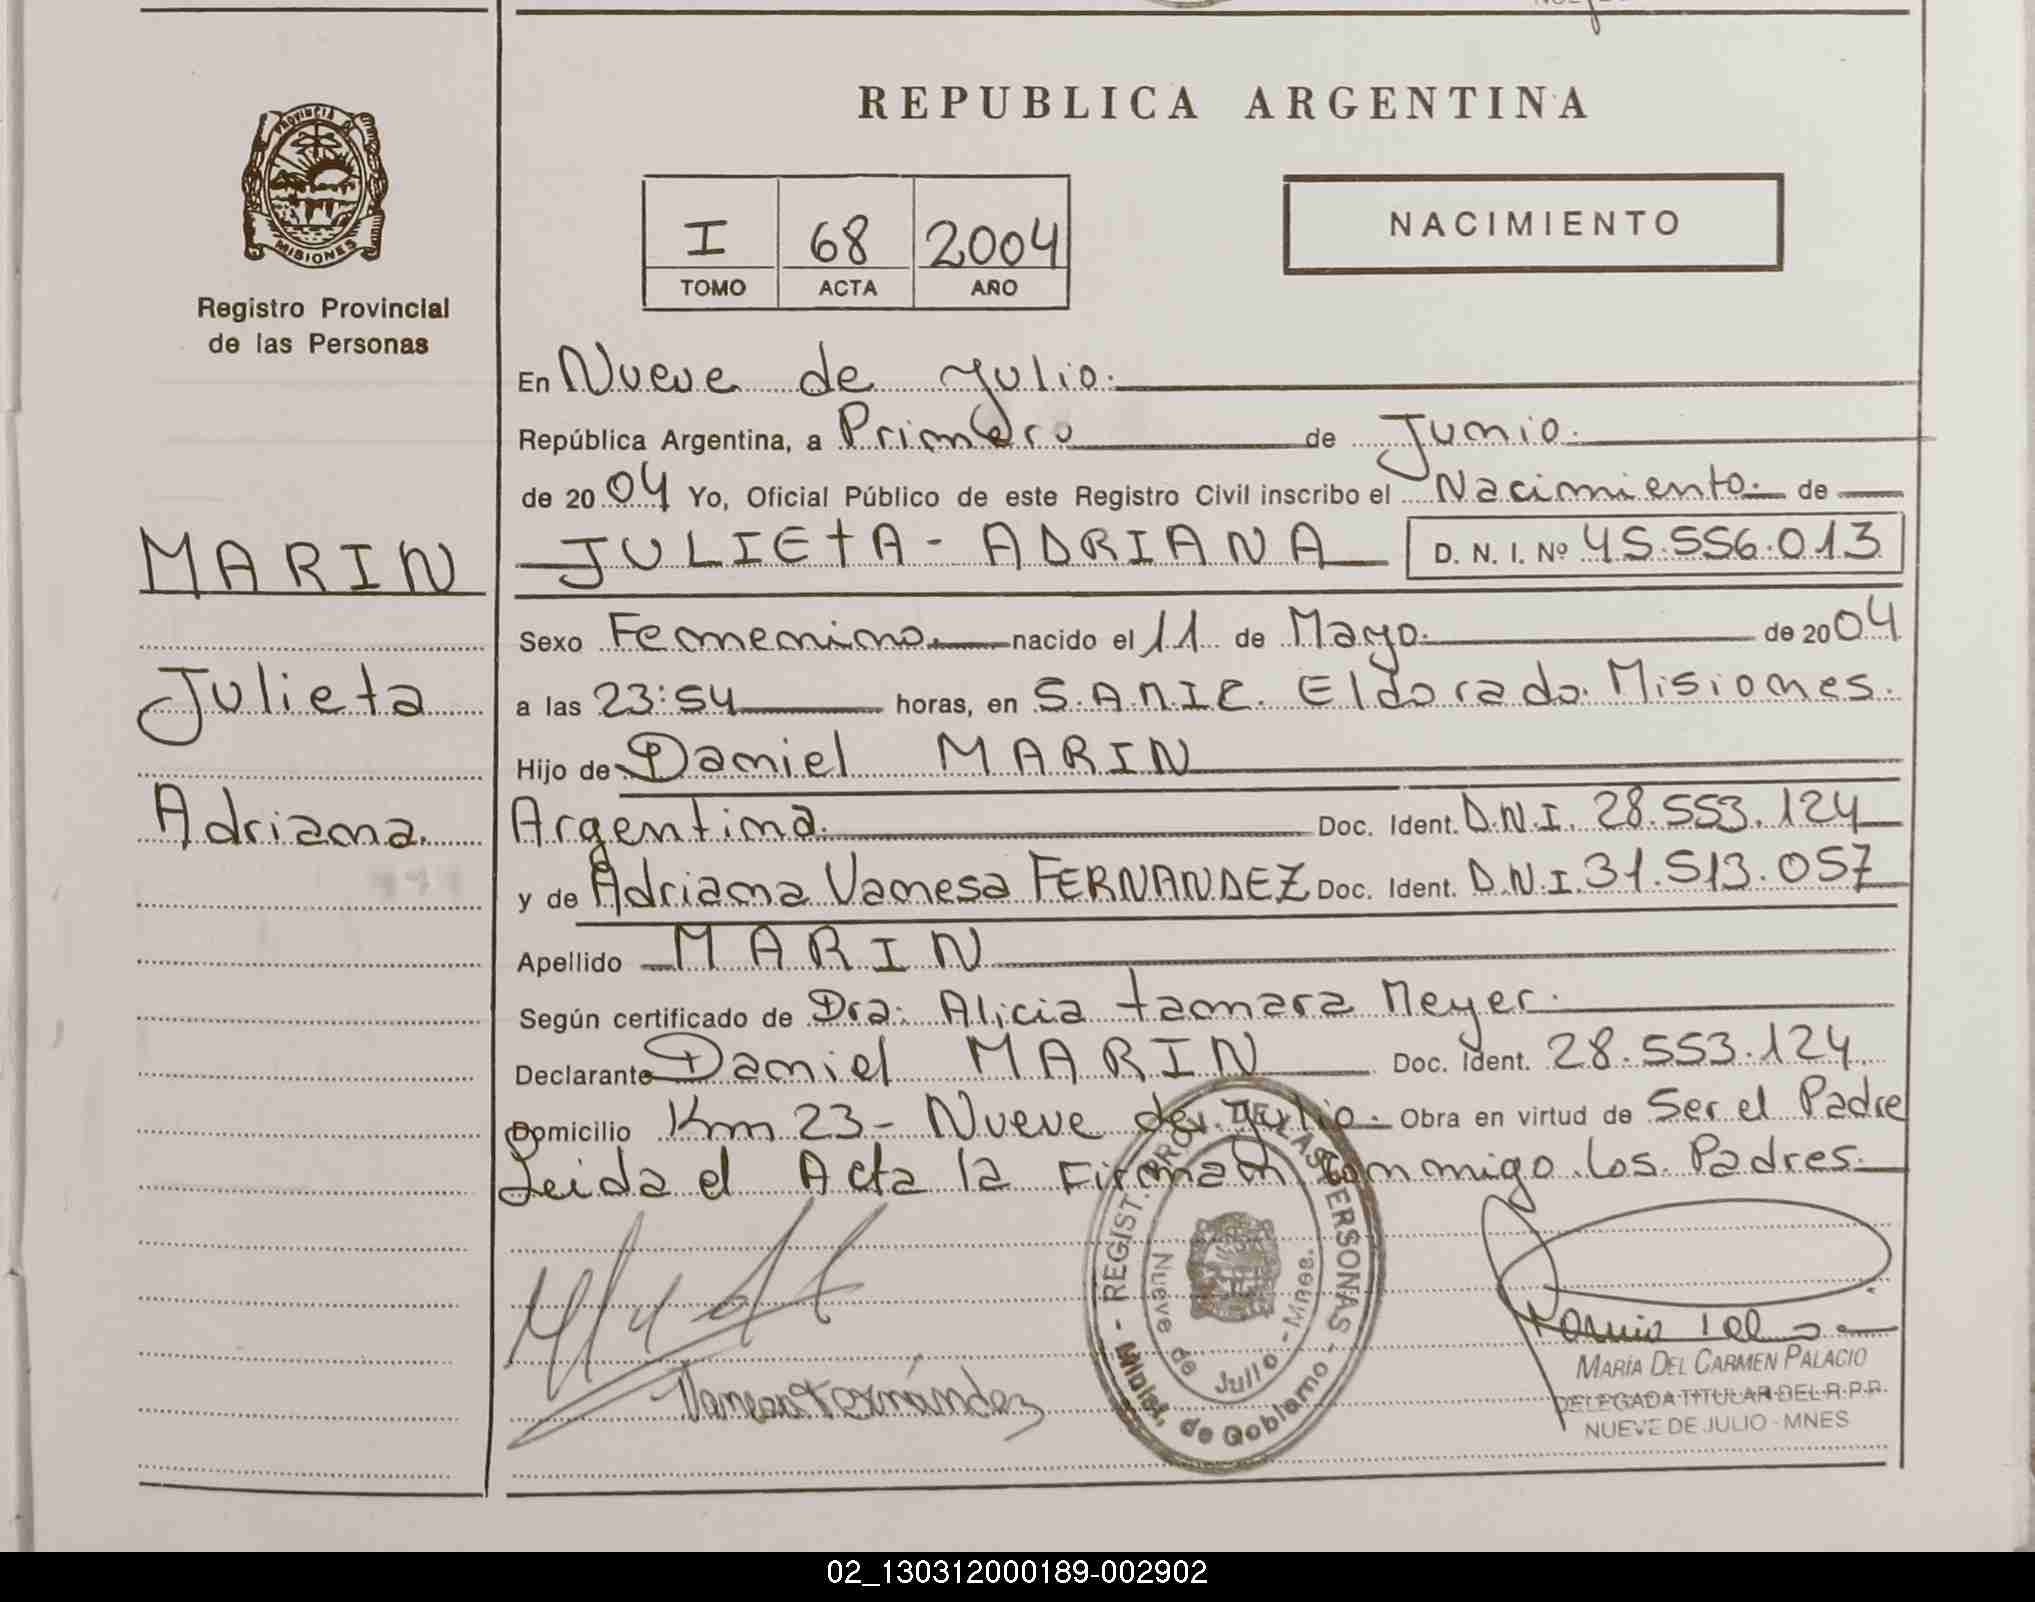 REPUBLICA ARGENTINA
PROVINCIA DE
MISIONES
Registro Provincial
de las Personas
I 68 2004
TOMO ACTA AÑO
NACIMIENTO
En Nueve de Julio.
República Argentina, a Primero de Junio.
de 20 04 Yo, Oficial Público de este Registro Civil inscribo el Nacimiento. de
MARIN
JULIETA - ADRIANA D. N. I. Nº 45.556.013
Sexo Femenino. nacido el 11 de Mayo. de 20 04
Julieta
a las 23:54 horas, en S.A.M.I.C. Eldorado. Misiones.
Hijo de Daniel MARIN
Adriana.
Argentina. Doc. Ident. D.N.I. 28.553.124
y de Adriana Vanesa FERNANDEZ Doc. Ident. D.N.I. 31.513.057
Apellido MARIN
Según certificado de Dra. Alicia Tamara Meyer.
Declarante Daniel MARIN Doc. Ident. 28.553.124
Domicilio Km 23 - Nueve de Julio. Obra en virtud de Ser el Padre
Leida el Acta la Firman conmigo los Padres.
REGIST. PROV. DE LAS PERSONAS - Minist. de Gobierno -
Nueve de Julio - Mnes.
Vanesa Fernández
MARÍA DEL CARMEN PALACIO
DELEGADA TITULAR DEL R.P.P.
NUEVE DE JULIO - MNES
02_130312000189-002902